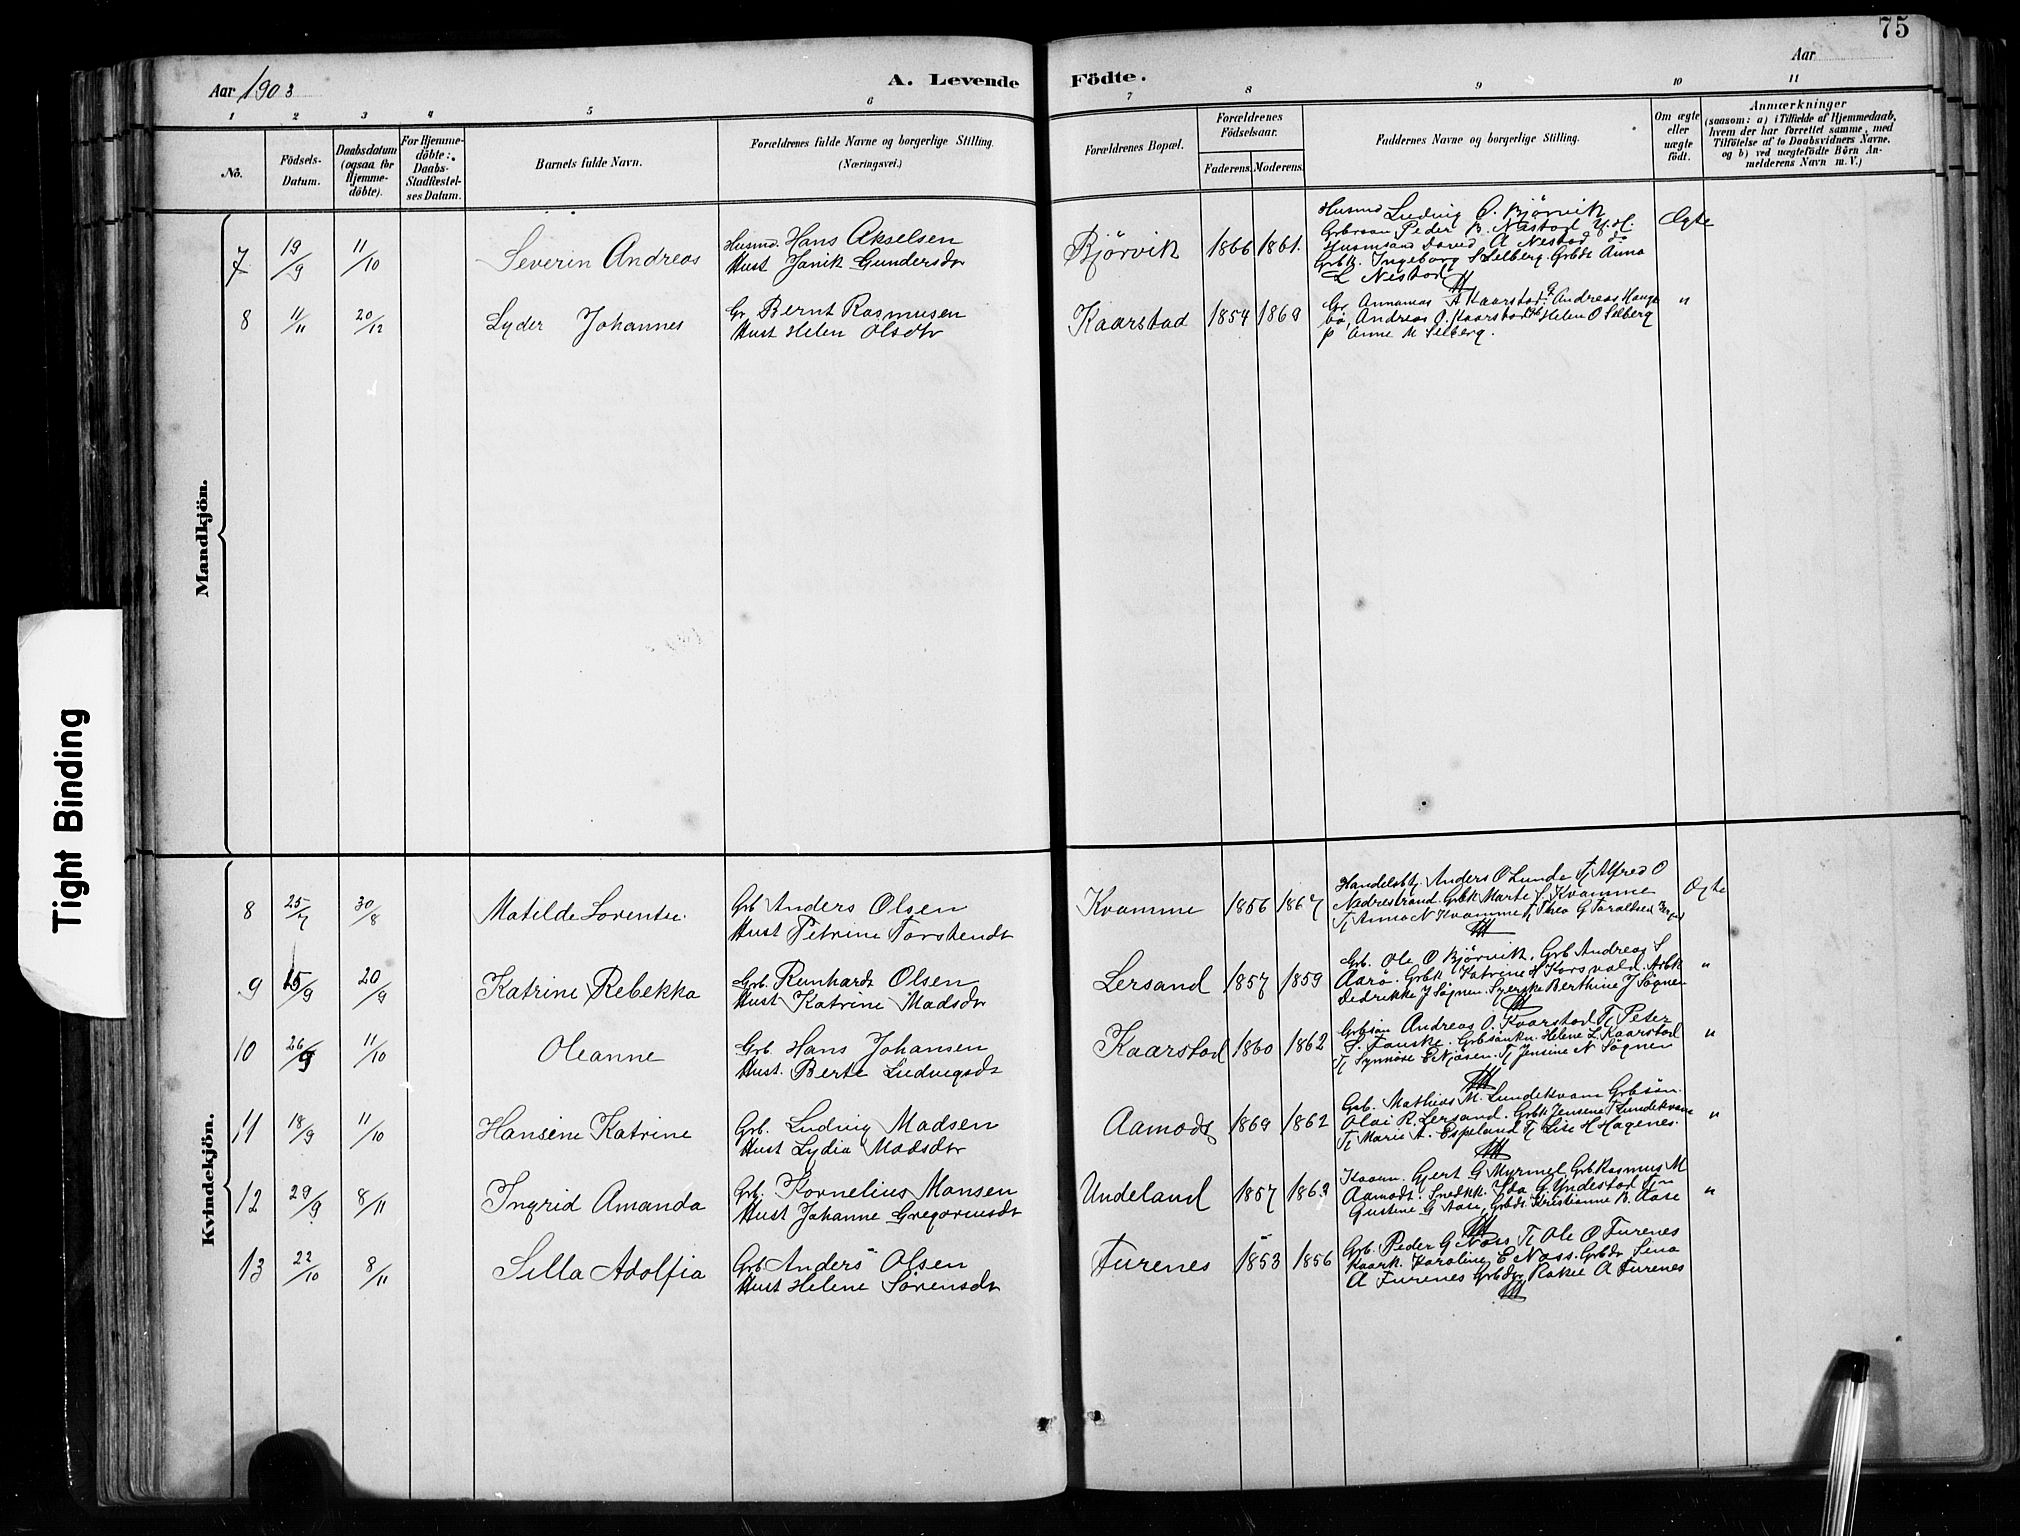 75
Aar 1903
A. Levende Födte.
Aar
1 2 3 4 5 6 7 8 9 10 11
No.
Födsels-Datum.
Daabsdatum (ogsaa for Hjemme-döbte).
For Hjemme-döbte: Daabs-Stadfæstel-ses Datum.
Barnets fulde Navn.
Forældrenes fulde Navne og borgerlige Stilling.
(Næringsvei.)
Forældrenes Bopæl.
Forældrenes Fødselsaar.
Faderens. Moderens.
Faddernes Navne og borgerlige Stilling.
Om ægte eller uægte födt.
Anmærkninger
(saasom: a) i Tilfælde af Hjemmedaab,
hvem der har forrettet samme, med
Tilföielse af to Daabsvidners Navne,
og b) ved uægtefödte Börn An-
melderens Navn m. V.)
Mandkjön.
7 19/9 11/10 Severin Andreas
Husmd. Hans Akselsen
Hust Janik Gundersdtr
Bjørvik 1866 1861.
Husmd Ludvig O. Bjørvik
Grbrsøn Peder B. Nestod
Husmsønd David A Nestod
Grbk. Ingeborg S Selberg Grbdt Anna
L Nestod
Ægte
8 11/11 20/12 Lyder Johannes
Gr Bernt Rasmusen
Hust Helen Olsdtr
Kaarstad 1854 1869
Gr Annanias A Kaarstod Andreas Hauge
bö, Andreas O. Kaarstod Helen O Selberg
p Anne M Selberg.
"
Kvindekjön.
8 25/7 30/8 Matilde Lorentse
Grb Anders Olsen
Hust Petrine Torstendt
Kvamme 1856 1867
Handelsbtj Anders O Lunde Tj Alfred O
Nedrestrand Grbk Marte S. Kvamme
Tj Anna N Kvamme Tj Thea G Taraldsed Bergen
Ægte
9 15/9 20/9 Katrine Rebekka
Grb. Renhardt Olsen
Hust Katrine Madsdtr
Lersand 1857 1859
Grb. Ole O Bjørvik, Grb Andreas S
Aarö. Grbk Katrine H Korsvold. Arbk
Dedrikke J Søgnen. Syerske Berthine J Søgnen
"
10 26/9 11/10 Oleanne
Grb. Hans Johansen
Hust. Berte Ludvigsdt
Kaarstod 1860 1862
Grbsøn Andreas O. Kaarstod Tj Peter
S. Fauske. Grbsönkn. Helene L. Kaarstod
Tj Synnöve E Njøsen. Tj Jensine N Søgnen
"
11 18/9 11/10 Hansine Katrine
Grb. Ludvig Madsen
Hust Lydia Madsdtr
Aamodt 1869 1862
Grb. Mathias M. Lundekvam Grbsøn.
Olai R. Lersand. Grbk Jensene T Lundekvam
Tj Marie A. Espeland Tj Lise H Hagenes.
"
12 29/9 8/11 Ingrid Amanda
Grb. Kornelius Monsen
Hust Johanne Gregoriusdt
Undeland 1857 1863
Kaarm. Gjert G Myrmel Grb Rasmus M
Aamodt. Snedkk. Ida G Yndestad
Gustine G Aase, Grbdt. Kristianne B. Aase
"
13 22/10 8/11 Silla Adolfia
Grb Anders Olsen
Hust Helene Sörensdt
Furenes 1853 1856
Grb. Peder G Næss Tj Ole O Furenes
Kaark. Karoline E Næss. Grbdr Sina
A Furenes Grbdtr Rakel A Furenes
"
Tight Binding